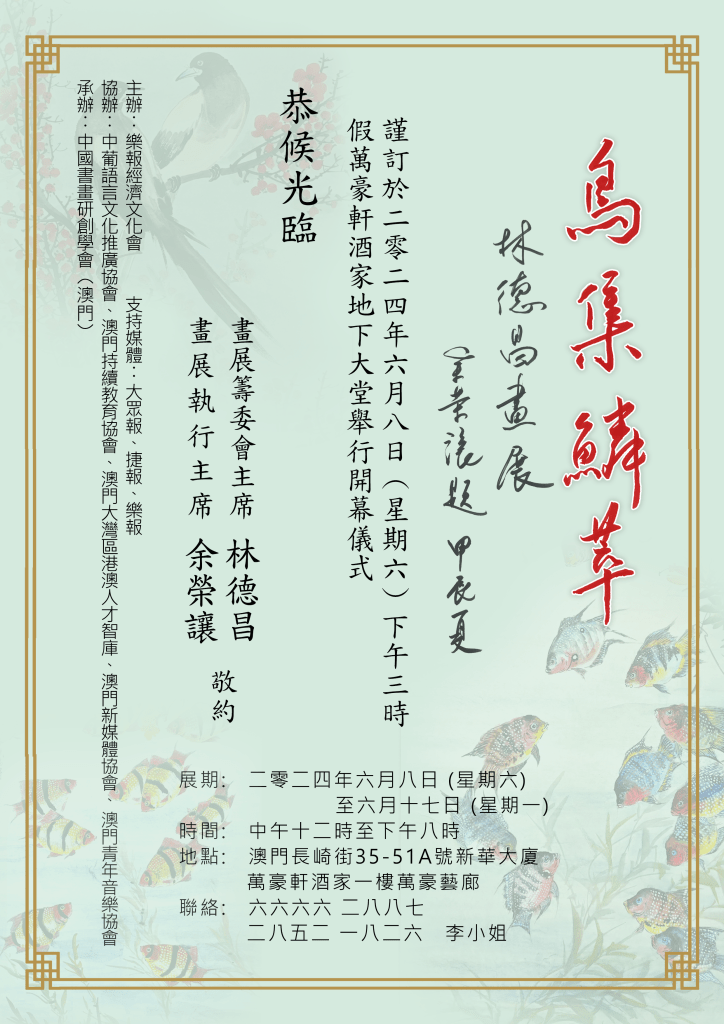 鳥集鱗萃
林德昌畫展
余榮讓題 甲辰夏
謹訂於二零二四年六月八日（星期六）下午三時
假萬豪軒酒家地下大堂舉行開幕儀式
恭候光臨
畫展籌委會主席 林德昌
畫展執行主席 余榮讓
敬約
主辦：樂報經濟文化會 支持媒體：大眾報、捷報、樂報
協辦：中葡語言文化推廣協會、澳門持續教育協會、澳門大灣區港澳人才智庫、澳門新媒體協會、澳門青年音樂協會
承辦：中國書畫研創學會（澳門）
展期: 二零二四年六月八日 (星期六)
至六月十七日 (星期一)
時間: 中午十二時至下午八時
地點: 澳門長崎街35-51A號新華大廈
萬豪軒酒家一樓萬豪藝廊
聯絡: 六六六六 二八八七
二八五二 一八二六 李小姐